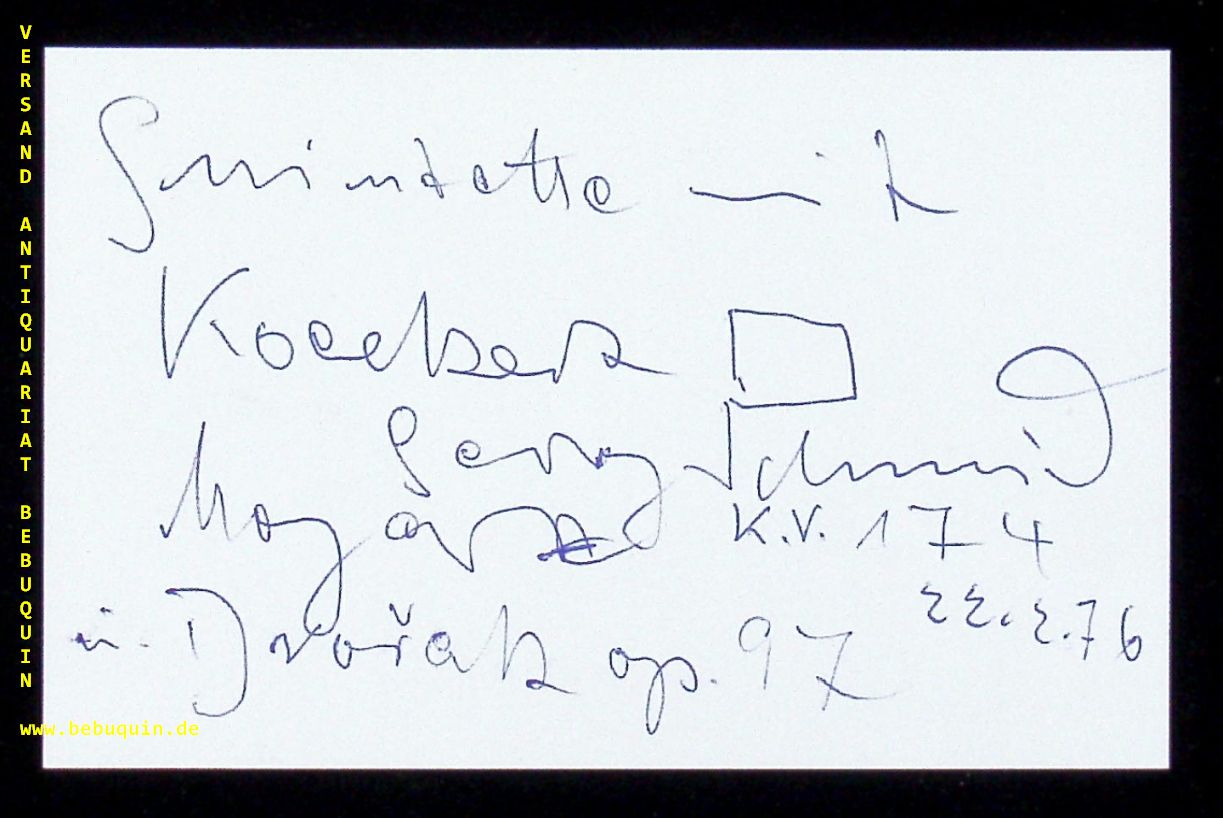 VERSAND ANTIQUARIAT BEBUQUIN
Quintette mit
Koeckert
Georg Schmid
Mozart K.V. 174
22.2.76
u. Dvořák op. 97
www.bebuquin.de